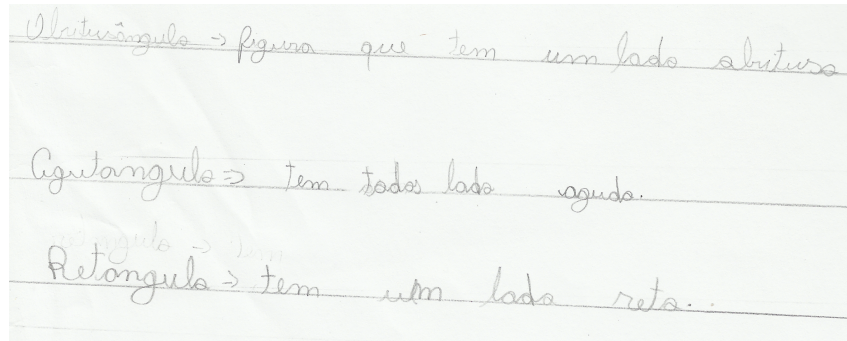 Obuturângulo → figura que tem um lado abutuso
Agutangulo ⇒ tem todos lado agudo.
Retangulo → tem um lado reto..